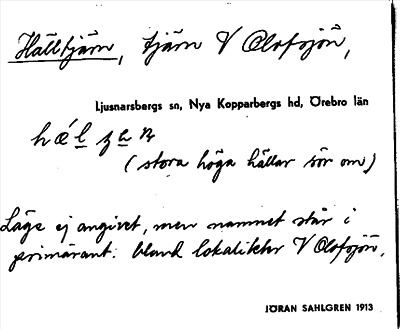 Hälltjärn, tjärn V Olofsjön,
Ljusnarsbergs sn, Nya Kopparbergs hd, Örebro län
(stora höga hällar sör om)
Läge ej angivet, men namnet står i
primärant. bland lokaliteter V Olofsjön.
JÖRAN SAHLGREN 1913